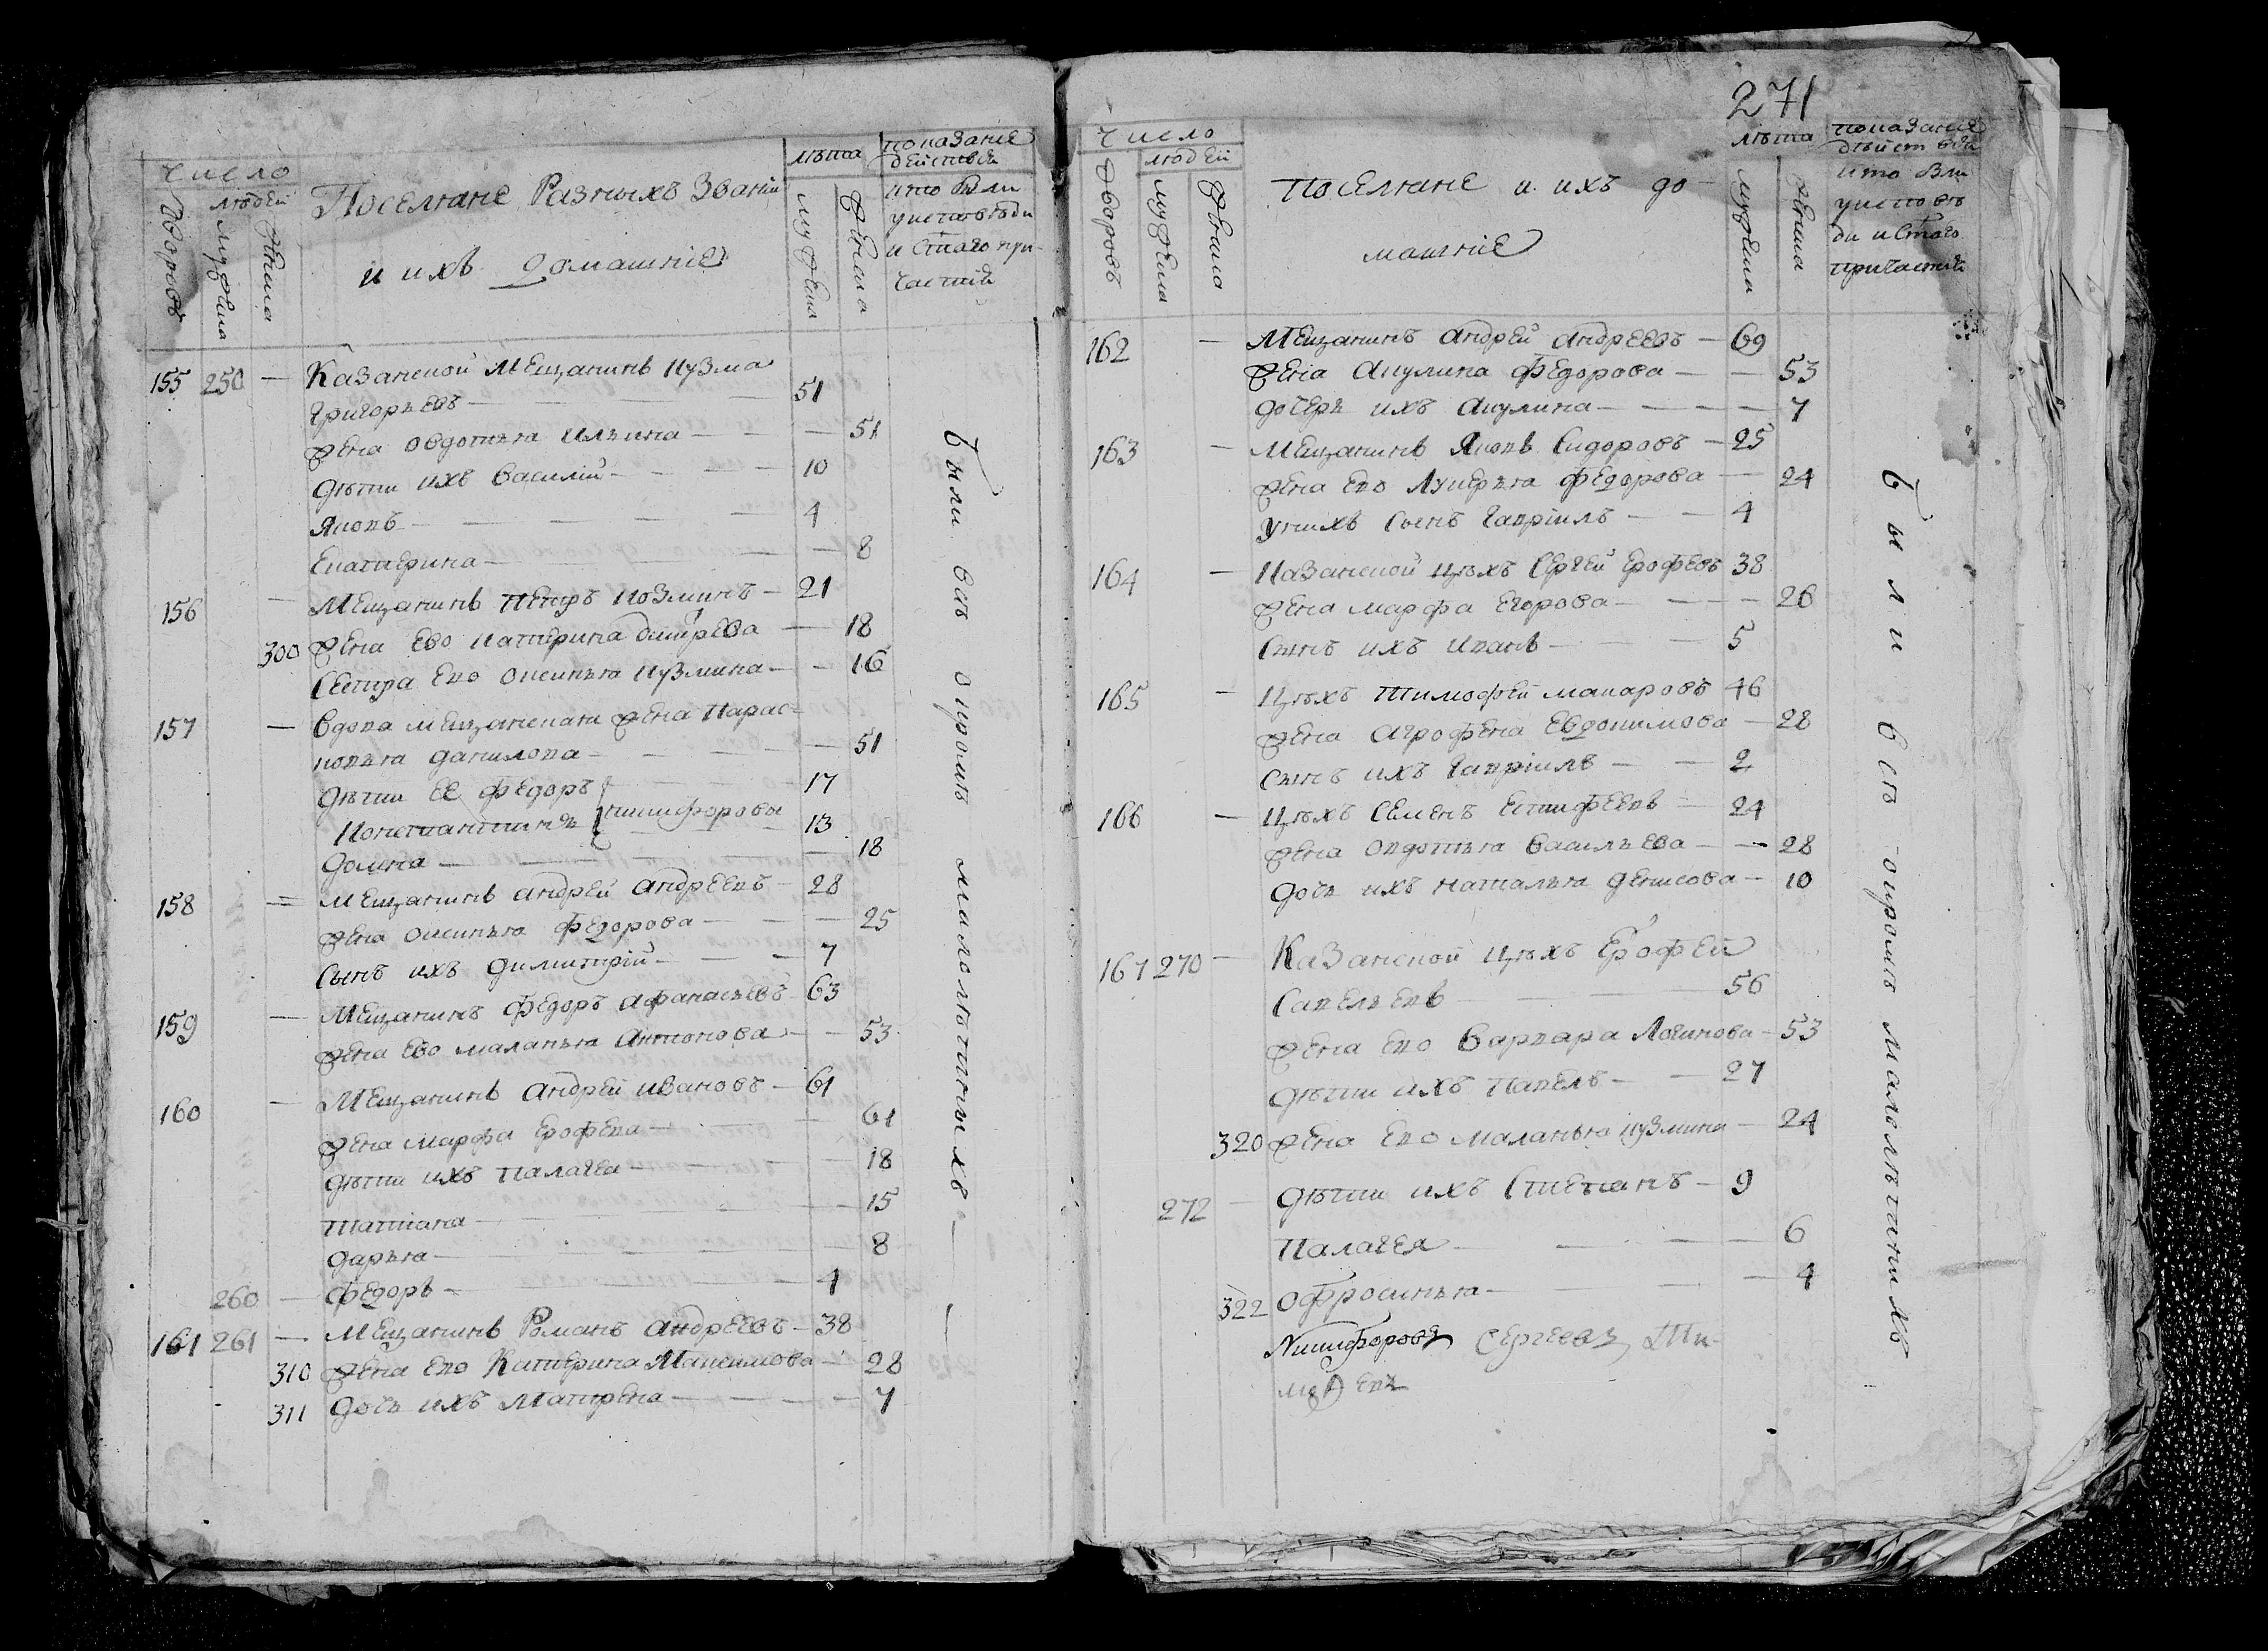 Число
Дворовъ
людей
мужеска
женска
Поселяне Разныхъ Званій
и ихъ домашніе
лѣта
мужеска
женска
показаніе
действъ
кто были
у исповѣди
и Стаго при-
частія
155 250 — Казанской Мещанинъ Кузма
Григорьевъ — 51
жена Овдотья Ильина — 51
дѣти ихъ Василий — 10
Яковъ — 4
Екатерина — 8
156 — Мещанинъ Петръ Козминъ — 21
300 жена Ево Катерина Дмитрева — 18
Сестра Ево Оксинья Кузмина — 16
157 — Вдова Мещанская жена Парас-
ковья Данилова — 51
дѣти Ее Федоръ — 17
Константинъ } Никифоровы 13
Домна — 18
158 = Мещанинъ Андрей Андреевъ — 28
жена Оксинья Федорова — 25
Сынъ ихъ Димитрій — 7
159 — Мещанинъ Федоръ Афанасьевъ 63
жена Ево Маланья Антонова — 53
160 — Мещанинъ Андрей Ивановъ — 61
жена Марфа Ерофева — 61
дѣти ихъ Палагея — 18
Татіана — 15
Дарья — 8
260 — Федоръ — 4
161 261 — Мещанинъ Романъ Андреевъ — 38
310 жена Ево Катерина Максимова — 28
311 дочь ихъ Матрена — 7
Были всѣ окромѣ малолѣтныхъ —
271
Число
Дворовъ
людей
мужеска
женска
Поселяне и ихъ до-
машніе
лѣта
мужеска
женска
показаніе
действъ
кто бы
у исповѣ
ди и Стаго
причастія
162 — Мещанинъ Андрей Андреевъ — 69
жена Акулина Федорова — 53
дочерь ихъ Акулина — 7
163 — Мещанинъ Яковъ Сидоровъ — 25
жена Ево Лукерья Федорова — 24
у нихъ Сынъ Гавріилъ — 4
164 — Казанской цѣхъ Сергей Ерофевъ 38
жена Марфа Егорова — 26
Сынъ ихъ Иванъ — 5
165 — Цѣхъ Тимофей Макаровъ 46
жена Агрофена Евдокимова — 28
Сынъ ихъ Гавріилъ — 2
166 — Цѣхъ Семенъ Естифеевъ — 24
жена Овдотья Васильева — 28
дочь ихъ Наталья Денисова — 10
167 270 — Казанской цѣхъ Ерофей
Савельевъ — 56
жена Ево Варвара Логинова — 53
дѣти ихъ Павелъ — 27
320 жена Ево Маланья Кузмина — 24
272 — дѣти ихъ Степанъ — 9
Палагея — 6
322 Офросинья — 4
Никифоровъ Сергеевъ
Были всѣ окромѣ малолѣтнимъ